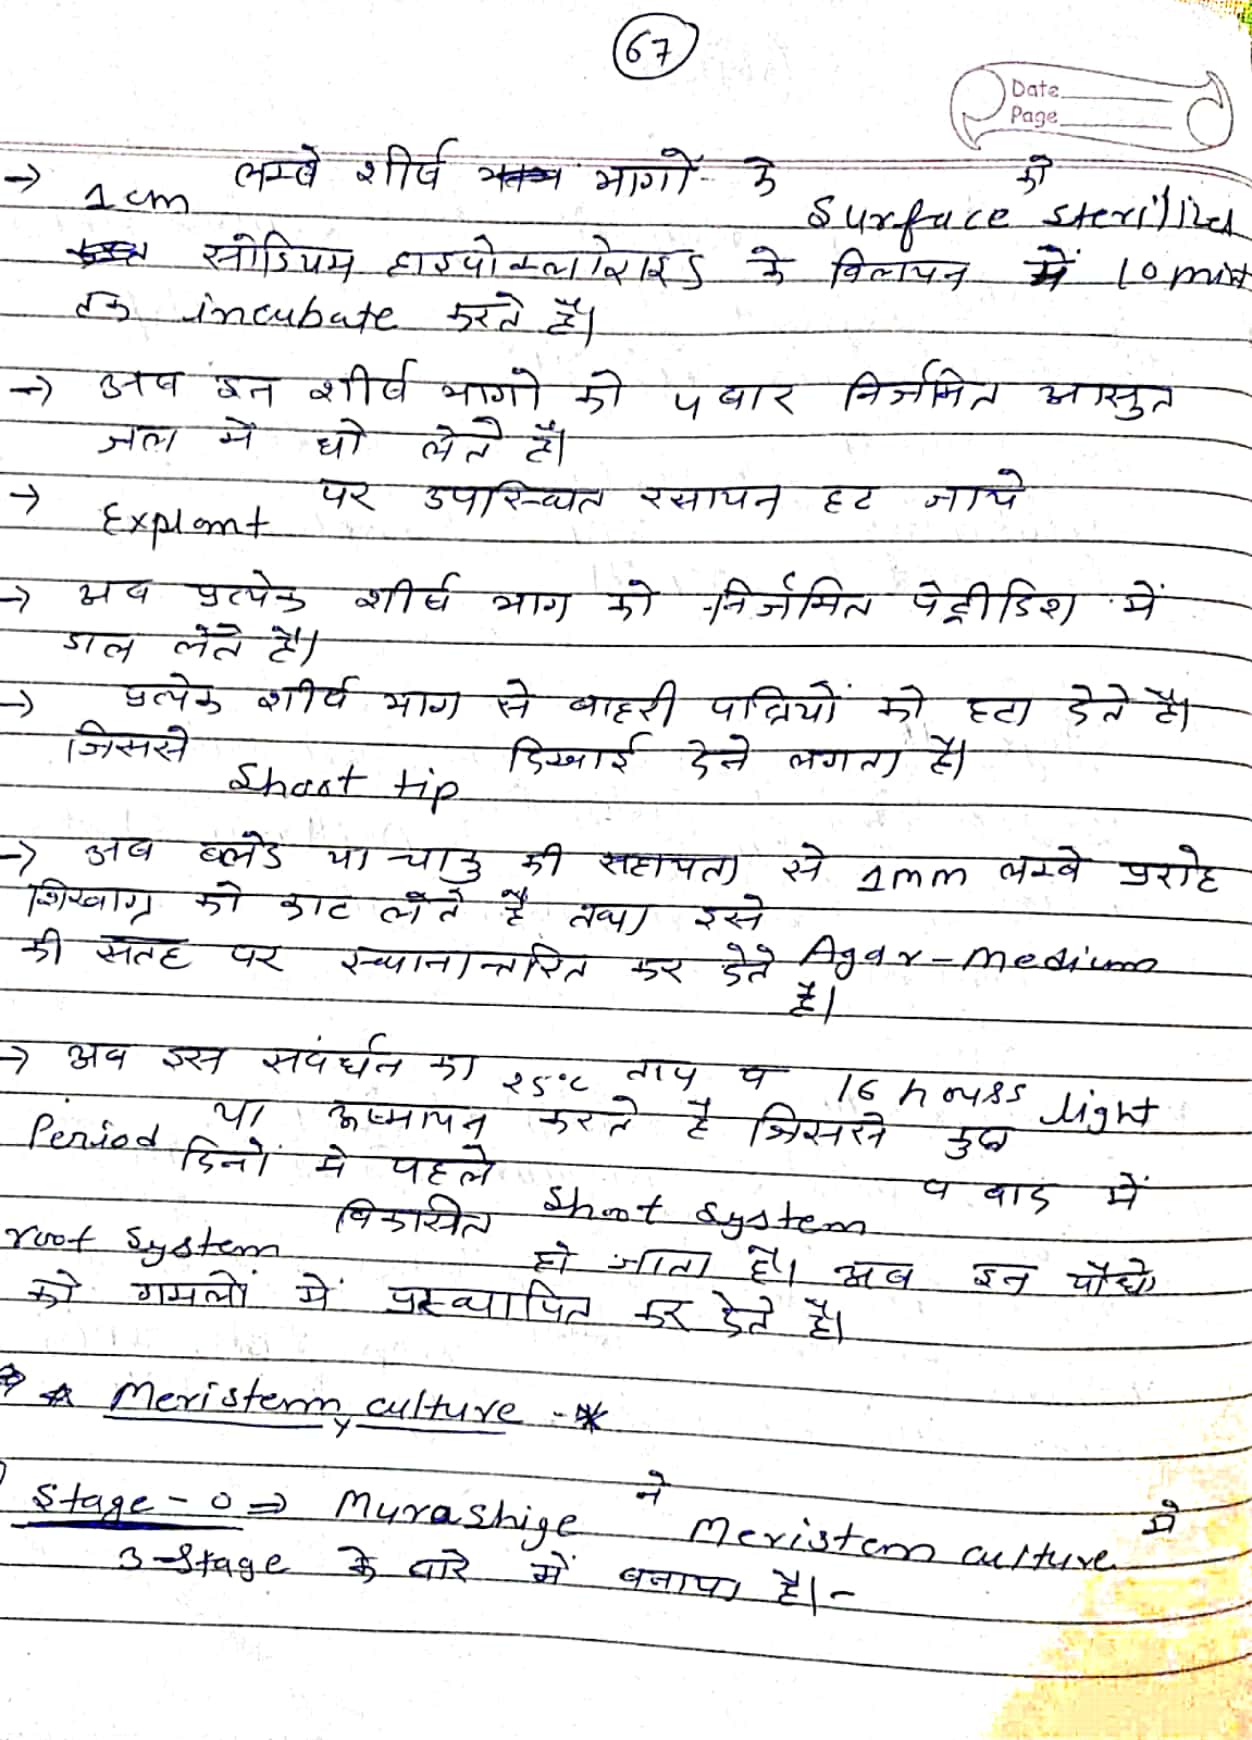 67
Date
Page
→ 1cm लम्बे शीर्ष भागों के Surface sterilized को
सोडियम हाइपोक्लोराइड के विलयन में 10 mint
तक incubate करते है।
→ अब इन शीर्ष भागो को 4 बार निर्जमित आसुत
जल में धो लेते है।
→ Explant पर उपस्थित रसायन हट जाये
→ अब प्रत्येक शीर्ष भाग को निर्जमित पेट्रीडिश में
डाल लेते है।
→ प्रत्येक शीर्ष भाग से बाहरी पत्तियों को हटा देते है।
जिससे Shoot tip दिखाई देने लगता है।
→ अब ब्लेड या चाकु की सहायता से 1mm लम्बे प्ररोह
शिखाग्र को काट लेते है तथा इसे Agar-medium
की सतह पर स्थानान्तरित कर देते है।
→ अब इस संवर्धन का 25°c ताप व 16 hours light
Period या ऊष्मायन करते है जिससे कुछ
दिनों मे पहले Shoot system व बाद में
root system विकसित हो जाता है। अब इन पौधो
को गमलों में प्रस्थापित कर देते है।
→ * Meristem culture -*
Stage-0 ⇒ Murashige ने Meristem culture मे
3-Stage के बारे में बनाया है।-